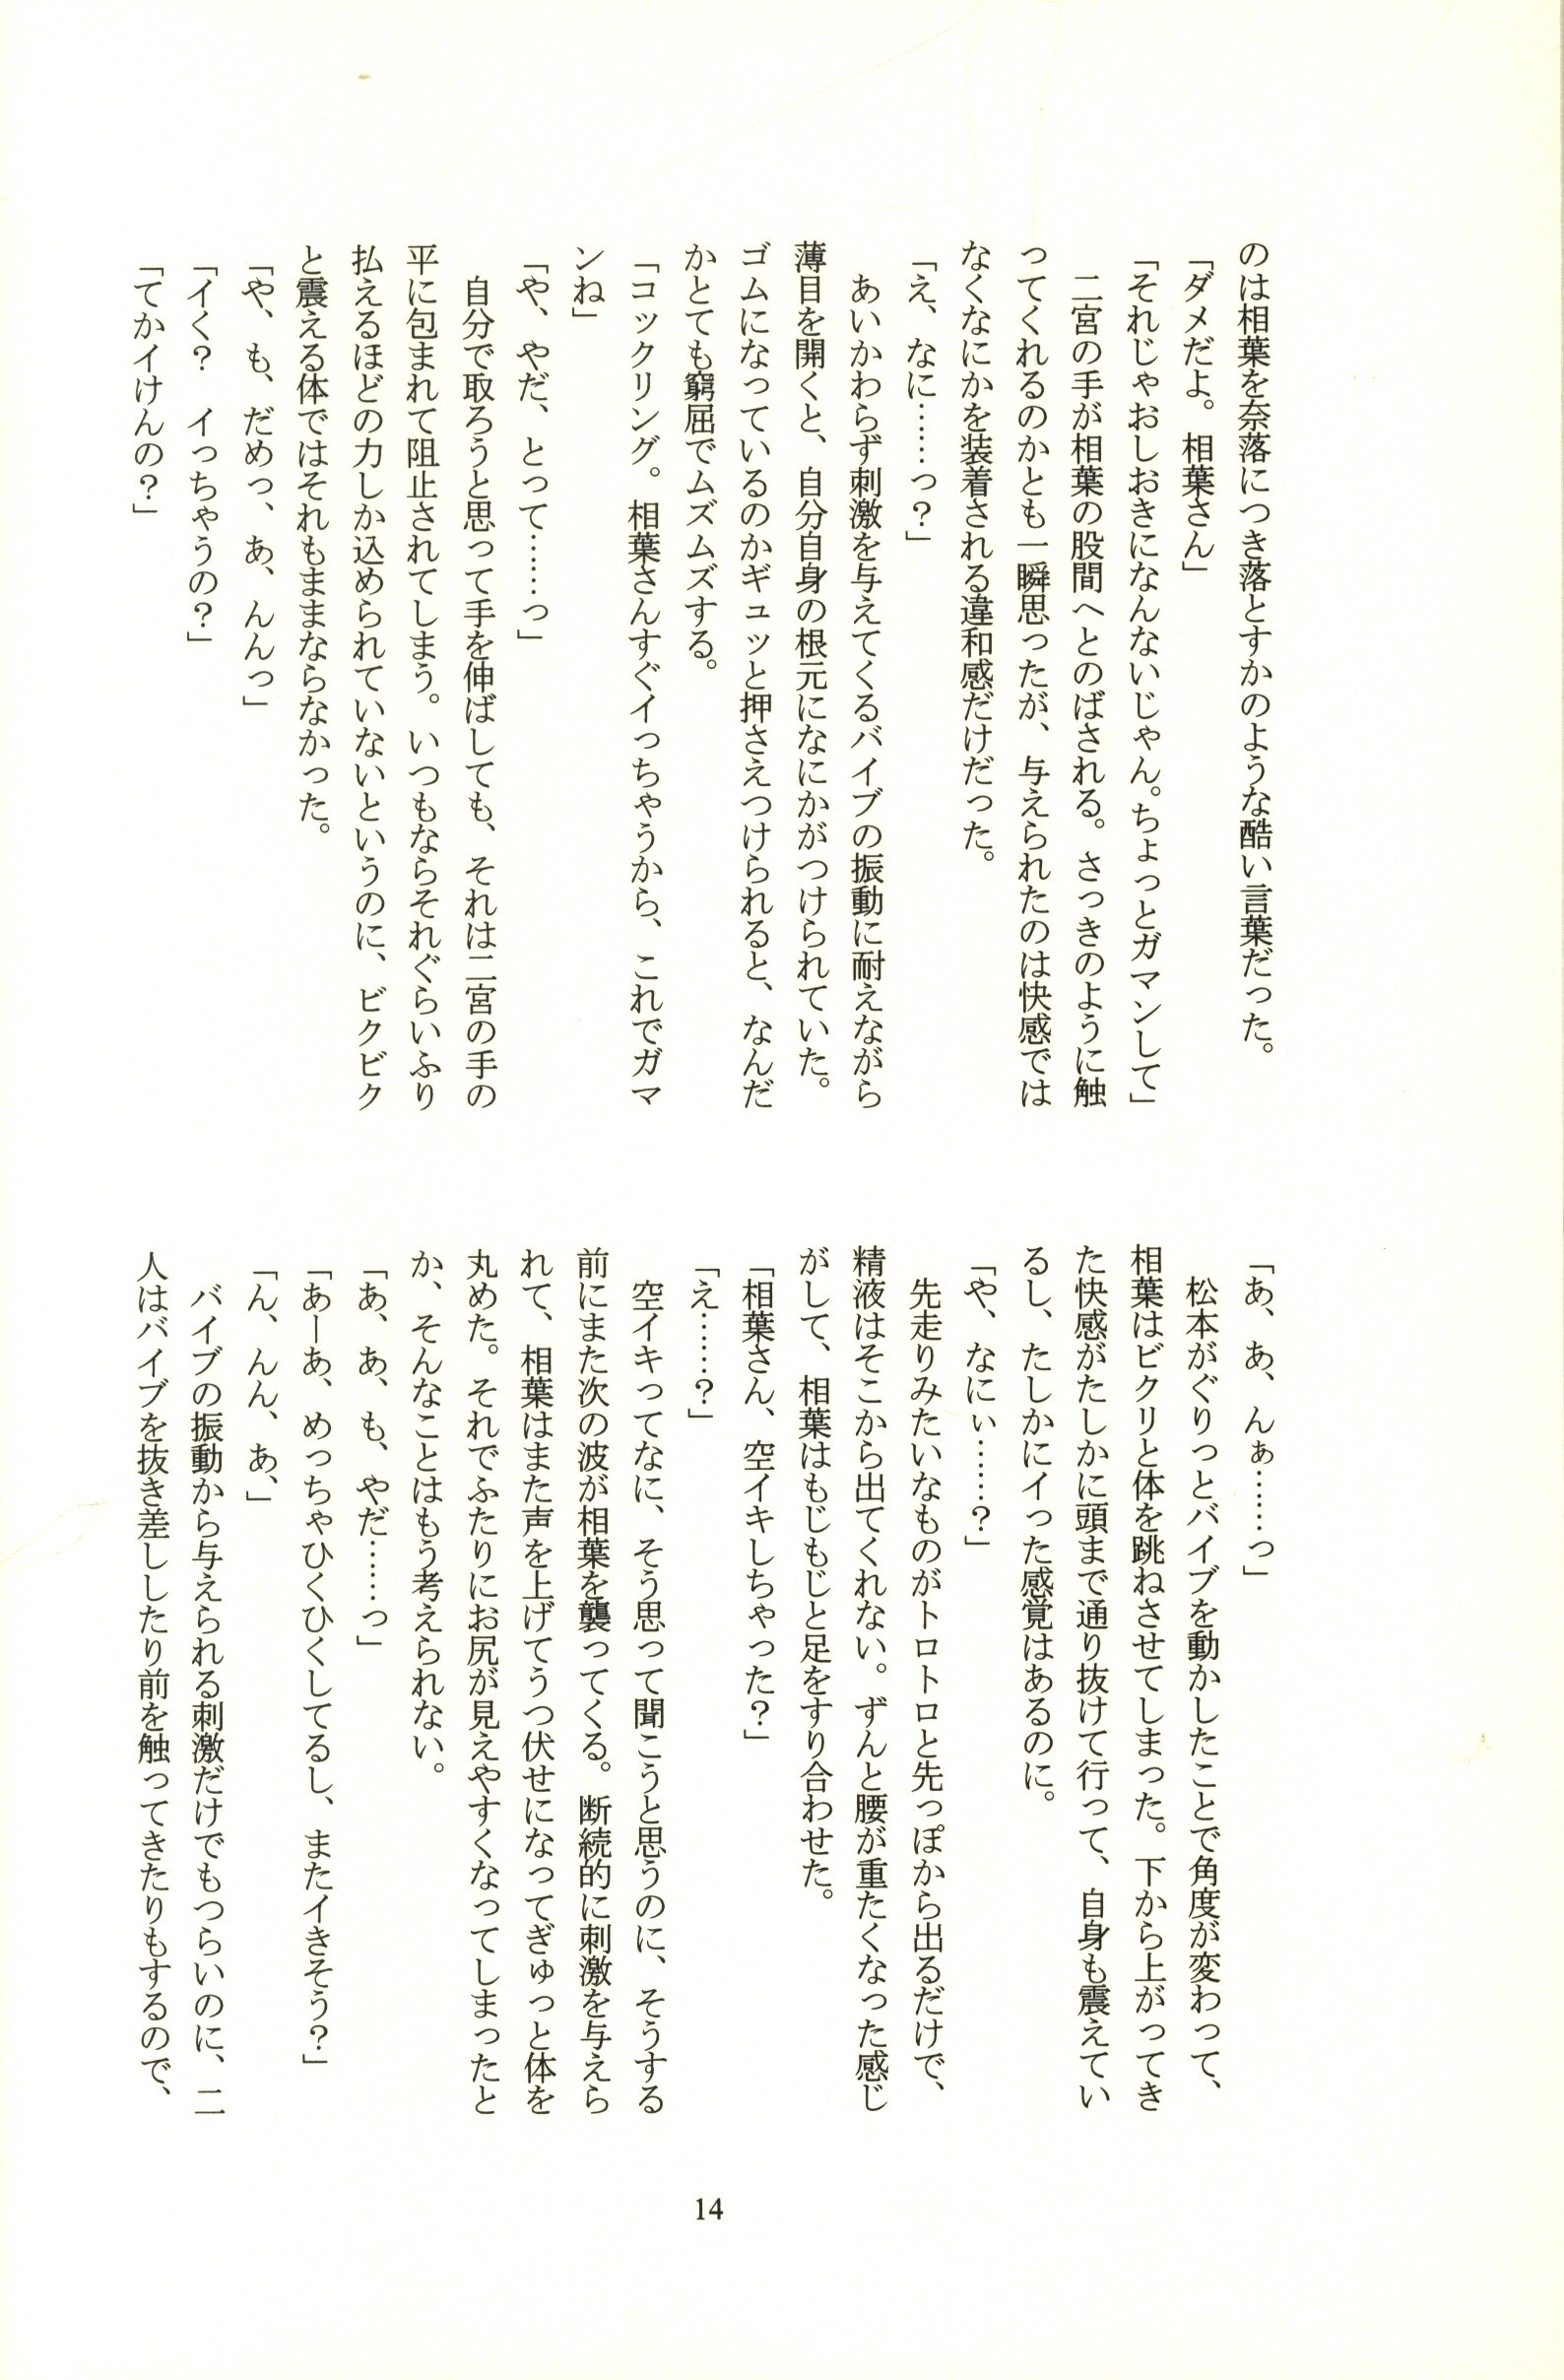 のは相葉を奈落につき落とすかのような酷い言葉だった。
「ダメだよ。相葉さん」
「それじゃおしおきになんないじゃん。ちょっとガマンして」
　二宮の手が相葉の股間へとのばされる。さっきのように触
ってくれるのかとも一瞬思ったが、与えられたのは快感では
なくなにかを装着される違和感だけだった。
「え、なに……っ？」
　あいかわらず刺激を与えてくるバイブの振動に耐えながら
薄目を開くと、自分自身の根元になにかがつけられていた。
ゴムになっているのかギュッと押さえつけられると、なんだ
かとても窮屈でムズムズする。
「コックリング。相葉さんすぐイっちゃうから、これでガマ
ンね」
「や、やだ、とって……っ」
　自分で取ろうと思って手を伸ばしても、それは二宮の手の
平に包まれて阻止されてしまう。いつもならそれぐらいふり
払えるほどの力しか込められていないというのに、ビクビク
と震える体ではそれもままならなかった。
「や、も、だめっ、あ、んんっ」
「イく？　イっちゃうの？」
「てかイけんの？」
「あ、あ、んぁ……っ」
　松本がぐりっとバイブを動かしたことで角度が変わって、
相葉はビクリと体を跳ねさせてしまった。下から上がってき
た快感がたしかに頭まで通り抜けて行って、自身も震えてい
るし、たしかにイった感覚はあるのに。
「や、なにぃ……？」
　先走りみたいなものがトロトロと先っぽから出るだけで、
精液はそこから出てくれない。ずんと腰が重たくなった感じ
がして、相葉はもじもじと足をすり合わせた。
「相葉さん、空イキしちゃった？」
「え……？」
　空イキってなに、そう思って聞こうと思うのに、そうする
前にまた次の波が相葉を襲ってくる。断続的に刺激を与えら
れて、相葉はまた声を上げてうつ伏せになってぎゅっと体を
丸めた。それでふたりにお尻が見えやすくなってしまったと
か、そんなことはもう考えられない。
「あ、あ、も、やだ……っ」
「あーあ、めっちゃひくひくしてるし、またイきそう？」
「ん、んん、あ、」
　バイブの振動から与えられる刺激だけでもつらいのに、二
人はバイブを抜き差ししたり前を触ってきたりもするので、
14